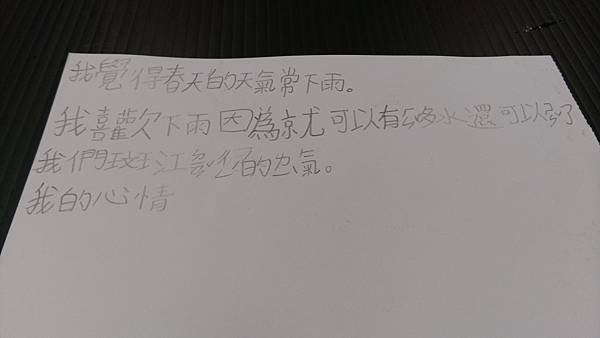 我覺得春天的天氣常下雨。
我喜歡下雨因為就可以有ㄉㄨㄛ水還可以
我們班江的氣。
我的心情